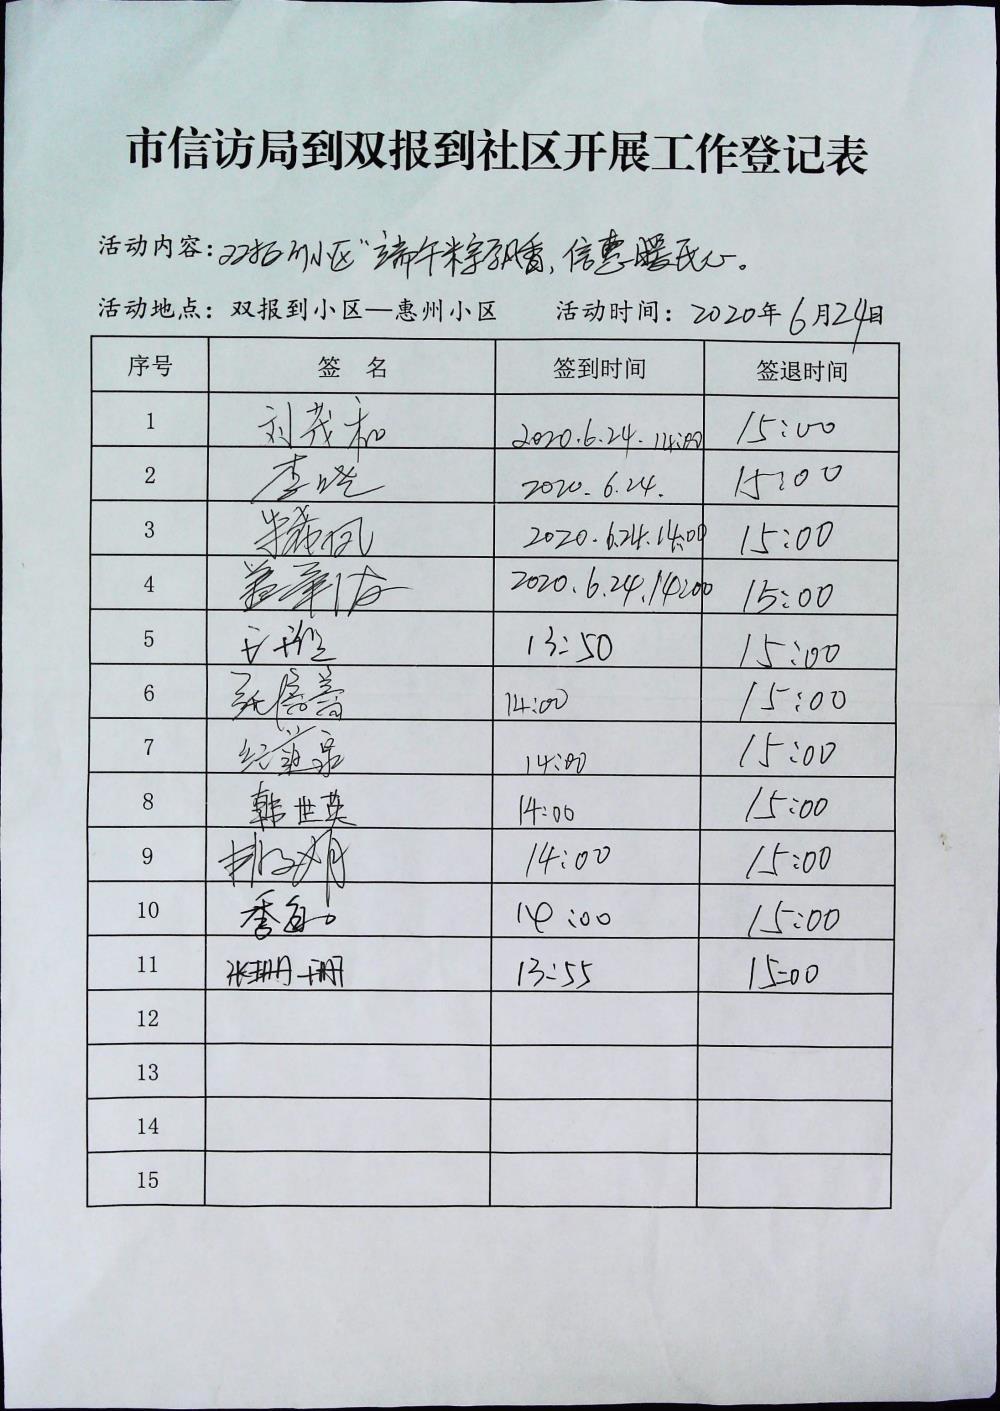 市信访局到双报到社区开展工作登记表
活动内容：双报到小区“端午粽飘香，信惠暖民心。
活动地点：双报到小区—惠州小区 活动时间：2020年6月24日
序号 签 名 签到时间 签退时间
1 刘茂和 2020.6.24.14:00 15:00
2 李 2020.6.24. 15:00
3 2020.6.24.14:00 15:00
4 2020.6.24.14:00 15:00
5 13:50 15:00
6 14:00 15:00
7 14:00 15:00
8 韩世英 14:00 15:00
9 14:00 15:00
10 季 14:00 15:00
11 张珊珊 13:55 15:00
12
13
14
15